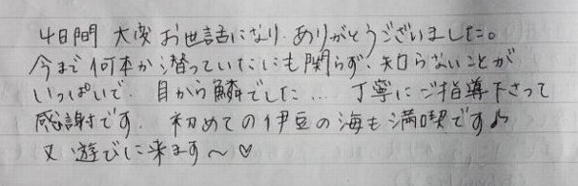 4日間 大変お世話になり、ありがとうございました。
今まで何本か潜っていたにも関らず、知らないことが
いっぱいで、目から鱗でした... 丁寧にご指導下さって
感謝です. 初めての伊豆の海も満喫です♪
又 遊びに来ます～♡